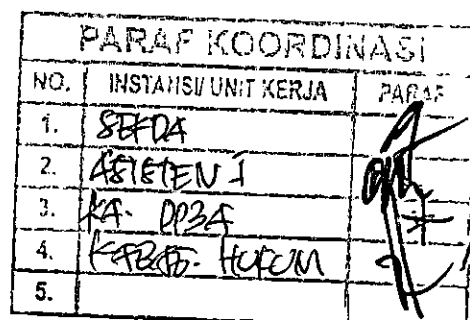 PARAF KOORDINASI
NO. INSTANSI/ UNIT KERJA PARAF
1. SEKDA
2. ASISTEN I
3. KA. DP3A
4. KABAG. HUKUM
5.